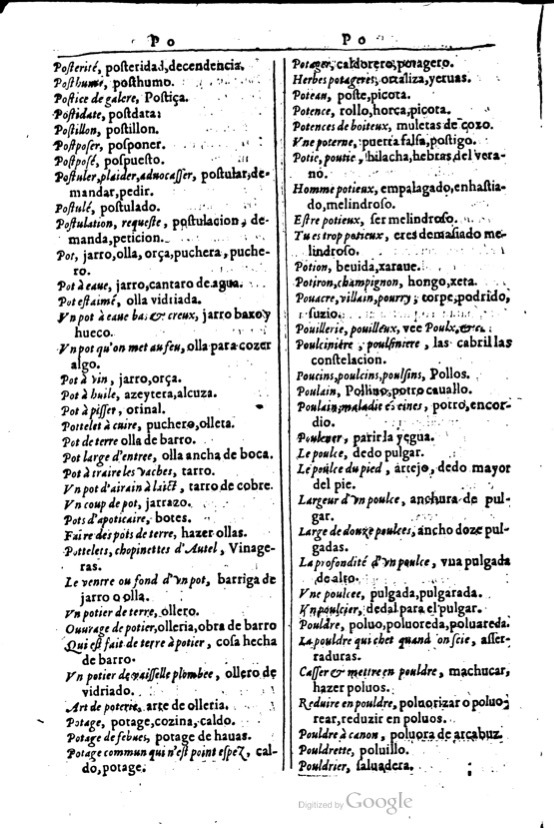 Po
Posterité, posteridad, decendencia.
Posthume, posthumo.
Postice de galere, Postiça.
Postidate, postdata:
Postillon, postillon.
Postposer, posponer.
Postposé, pospuesto.
Postuler, plaider, advocasser, postular, de-
mandar, pedir.
Postulé, postulado.
Postulation, requeste, postulacion, de-
manda, peticion.
Pot, jarro, olla, orça, puchera, puche-
ro.
Pot à eaue, jarro, cantaro de agua.
Pot estaimé, olla vidriada.
Vn pot à eaue bas & creux, jarro baxo y
hueco.
Vn pot qu'on met au feu, olla para cozer
algo.
Pot à vin, jarro, orça.
Pot à huile, azeytera, alcuza.
Pot à pisser, orinal.
Pottelet à cuire, puchero, olleta.
Pot de terre olla de barro.
Pot large d'entree, olla ancha de boca.
Pot à traire les vaches, tarro.
Vn pot d'airain à laict, tarro de cobre.
Vn coup de pot, jarrazo.
Pots d'apoticaire, botes.
Faire des pots de terre, hazer ollas.
Pottelets, chopinettes d'Autel, Vinage-
ras.
Le ventre ou fond d'vn pot, barriga de
jarro o olla.
Vn potier de terre, ollero.
Ouurage de potier, olleria, obra de barro
Qui est fait de terre à potier, cosa hecha
de barro.
Vn potier de vaisselle plombee, ollero de
vidriado.
Art de poterie, arte de olleria.
Potage, potage, cozina, caldo.
Potage de febues, potage de hauas.
Potage commun qui n'est point espez, cal-
do, potage.
Po
Potager, caldorero, potagero.
Herbes potageres, ortaliza, yeruas.
Poteau, poste, picota.
Potence, rollo, horca, picota.
Potences de boiteux, muletas de coxo.
Vne poterne, puerta falsa, postigo.
Potie, poutie, hilacha, hebras del vera-
no.
Homme potieux, empalagado, enhastia-
do, melindroso.
Estre potieux, ser melindroso.
Tu es trop potieux, eres demasiado me-
lindroso.
Potion, beuida, xaraue.
Potiron, champignon, hongo, xeta.
Pouacre, villain, pourry, torpe, podrido,
suzio.
Pouillerie, pouilleux, vee Poulx, &c.
Poulciniere, poulsiniere, las cabrillas
constelacion.
Poucins, poulcins, poulsins, Pollos.
Poulain, Pollino, potro cauallo.
Poulain, maladie és eines, potro, encor-
dio.
Pouliner, parir la yegua.
Le poulce, dedo pulgar.
Le poulce du pied, artejo, dedo mayor
del pie.
Largeur d'vn poulce, anchura de pul-
gar.
Large de douze poulces, ancho doze pul-
gadas.
La profondité d'vn poulce, vna pulgada
de alto.
Vne poulcee, pulgada, pulgarada.
Vn poulcier, dedal para el pulgar.
Pouldre, poluo, poluoreda, poluareda.
La pouldre qui chet quand on scie, asser-
raduras.
Casser & mettre en pouldre, machucar,
hazer poluos.
Reduire en pouldre, poluorizar o poluo-
rear, reduzir en poluos.
Pouldre à canon, poluora de arcabuz.
Pouldrette, poluillo.
Pouldrier, saluadera.
Digitized by Google